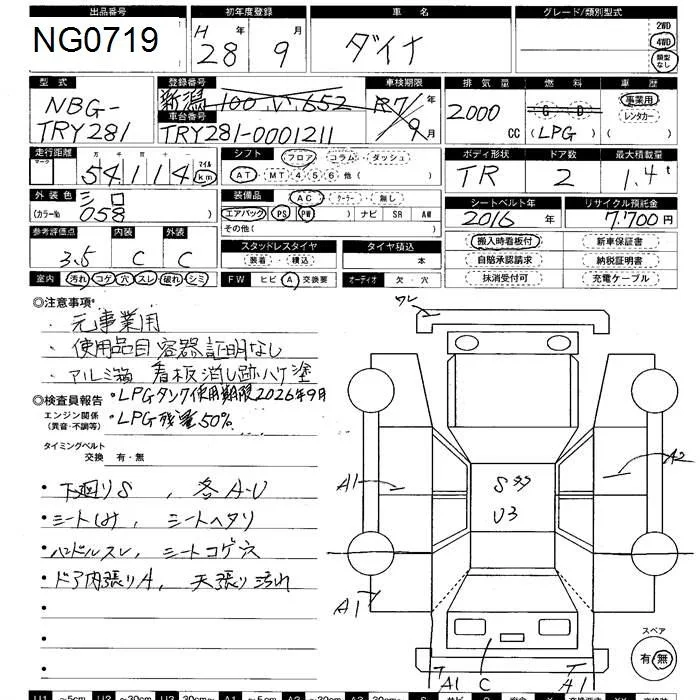 出品番号 初年度登録 車名 グレード/類別型式
NG0719 H 28 年 9 月 ダイナ 2WD 4WD 類型なし
型式 登録番号 車検期限 排気量 燃料 車歴
NBG-TRY281 新潟 100 い 652 R7 年 9 月 2000 CC G D (LPG) 事業用 レンタカー ( )
車台番号
TRY281-0001211
走行距離 シフト フロア・コラム・ダッシュ ボディ形状 ドア数 最大積載量
マーク 十万 万 千 百 十 一 マイル km
54114 AT・MT 4 5 6 他( ) TR 2 1.4t
外装色 装備品 AC・クーラー・無し シートベルト年 リサイクル預託金
(カラーNo 058 ) エアバック PS PW ナビ SR AW 2016年 7,700円
その他( )
参考評価点 内装 外装 スタッドレスタイヤ タイヤ積込 搬入時看板付 新車保証書
3.5 C C 装着・積込 本 自賠承認請求 納税証明書
室内 汚れ コゲ 穴 スレ 破れ シミ FW ヒビ A 交換要 オーディオ 欠・穴 抹消受付可 充電ケーブル
◎注意事項
・元事業用
・使用品目容器証明なし
・アルミ箱 看板消し跡ハケ塗
◎検査員報告 ・LPGタンク使用期限2026年9月
エンジン関係 ・LPG残量50%
(異音・不調等)
タイミングベルト
交換 有・無
・下廻りS, 各A-U
・シートしみ, シートヘタリ
・ハンドルスレ, シートコゲ穴
・ドア内張りA, 天張り汚れ
ワレ
A1
A2
S
U3
A1
A1
C
A1
スペア
有・無